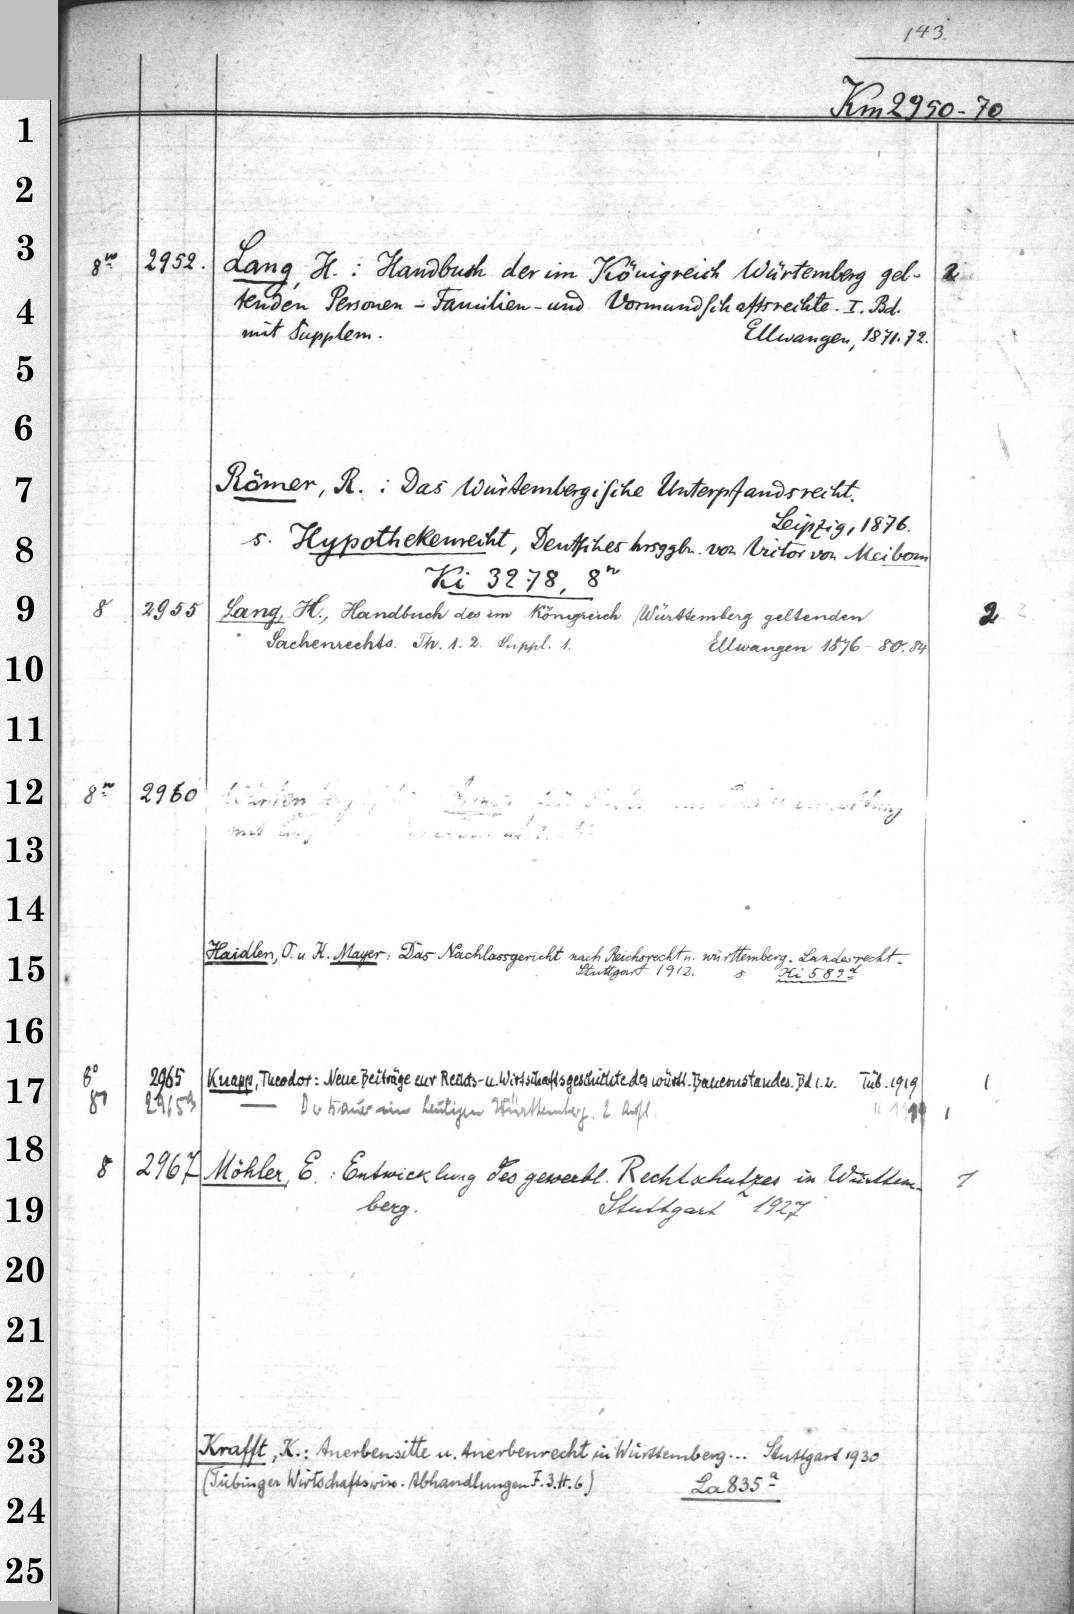 143.
Km 2950-70
1
2
3
8º 2952. Lang, H. : Handbuch der im Königreich Würtemberg gel- 2
4
tenden Personen - Familien - und Vormundschaftsrechte. I. Bd.
mit Supplem. Ellwangen, 1871.72.
5
6
7
Römer, R. : Das Würtembergische Unterpfandsrecht.
Leipzig, 1876.
8
s. Hypothekenrecht, Deutsches hrsggbn. von Victor von Meibom
Ki 3278, 8º
9
8 2955 Lang, H., Handbuch des im Königreich Württemberg geltenden 2
Sachenrechts. Th. 1. 2. Suppl. 1. Ellwangen 1876-80.84
10
11
12
8º 2960
13
14
15
Haidlen, O. u. K. Mayer: Das Nachlassgericht nach Reichsrecht u. württemberg. Landesrecht.
Stuttgart 1912. s Ki 589ᵃ
16
17
8º 2965 Knapp, Theodor: Neue Beiträge zur Rechts- u. Wirtschaftsgeschichte des württ. Bauernstandes. Bd 1.2. Tüb. 1919 1
8º 2965a — Der Bauer im heutigen Württemberg. 2 Aufl. " 1919 1
18
8 2967 Möhler, E. : Entwicklung des gewerbl. Rechtschutzes in Württem- 1
19
berg. Stuttgart 1927
20
21
22
23
Krafft, K.: Anerbensitte u. Anerbenrecht in Württemberg... Stuttgart 1930
(Tübinger Wirtschaftswiss. Abhandlungen F. 3. H. 6) La 835ᵃ
24
25